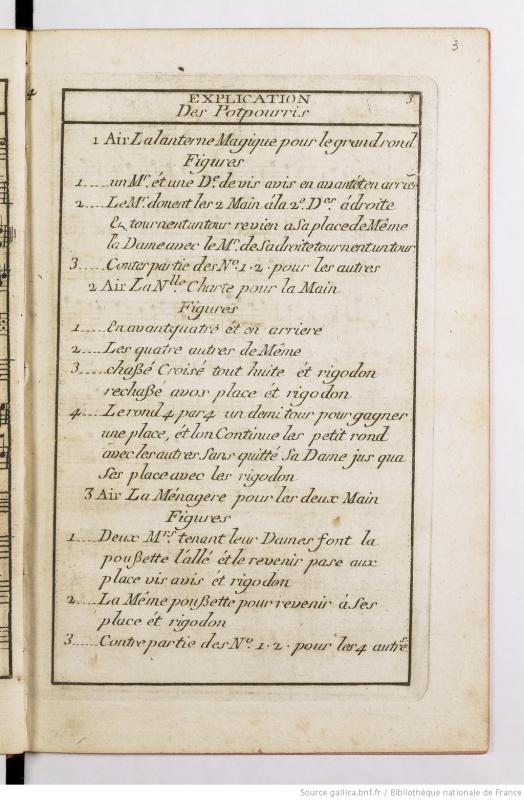 3
4
EXPLICATION 3
Des Potpourris
1 Air La lanterne Magique pour le grand rond
Figures
1..... un Mr. ét une De. de vis avis en avant ét en arriere
2..... Le Mr. donent les 2 Main á la 2e. Des. á droite
Et tournent un tour revien a Sa place de Même
la Dame avec le Mr. de Sa droite tournent un tour
3..... Conter partie des No. 1 · 2 · pour les autres
2 Air La Nlle Charte pour la Main
Figures
1..... En avant quatre ét en arriere
2..... Les quatre autres de Même
3..... chaßé Croisé tout huite ét rigodon
rechaßé avos place ét rigodon
4..... Le rond 4 par 4 un demi tour pour gagner
une place, ét lon Continue les petit rond
avec les autres Sans quitté Sa Dame jus qua
Ses place avec les rigodon
3 Air La Ménagere pour les deux Main
Figures
1..... Deux Mrs. tenant leur Dames font la
poußette l'allé ét le revenir pase aux
place vis avis ét rigodon
2..... La Même poußette pour revenir á Ses
place ét rigodon
3..... Contre partie des No. 1 · 2 · pour les 4 autres
Source gallica.bnf.fr / Bibliothèque nationale de France